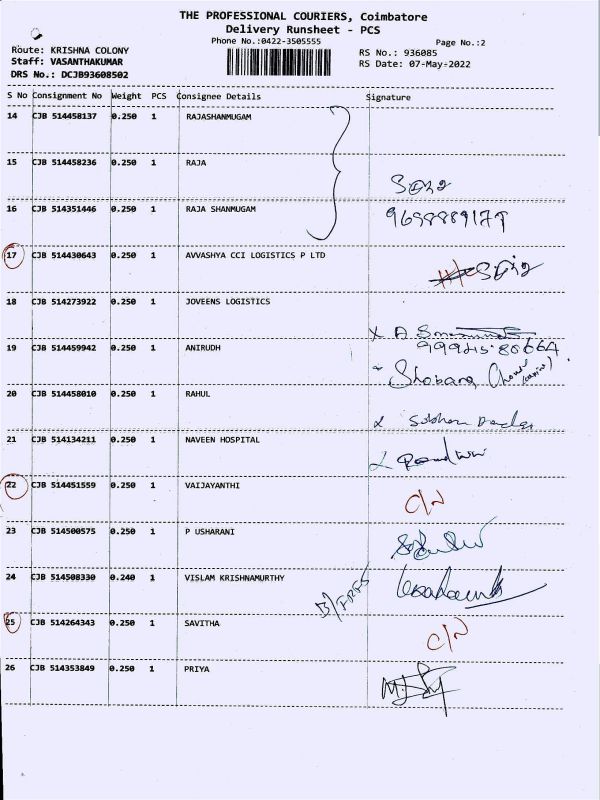 THE PROFESSIONAL COURIERS, Coimbatore
Delivery Runsheet - PCS
Phone No.:0422-3505555
Page No.:2
Route: KRISHNA COLONY
RS No.: 936085
Staff: VASANTHAKUMAR
RS Date: 07-May-2022
DRS No.: DCJB93608502
S No Consignment No Weight PCS Consignee Details Signature
14 CJB 514458137 0.250 1 RAJASHANMUGAM
15 CJB 514458236 0.250 1 RAJA
16 CJB 514351446 0.250 1 RAJA SHANMUGAM
17 CJB 514430643 0.250 1 AVVASHYA CCI LOGISTICS P LTD
18 CJB 514273922 0.250 1 JOVEENS LOGISTICS
19 CJB 514459942 0.250 1 ANIRUDH
Shobana
20 CJB 514458010 0.250 1 RAHUL
21 CJB 514134211 0.250 1 NAVEEN HOSPITAL
22 CJB 514451559 0.250 1 VAIJAYANTHI C/N
23 CJB 514500575 0.250 1 P USHARANI
24 CJB 514508330 0.240 1 VISLAM KRISHNAMURTHY
25 CJB 514264343 0.250 1 SAVITHA C/N
26 CJB 514353849 0.250 1 PRIYA